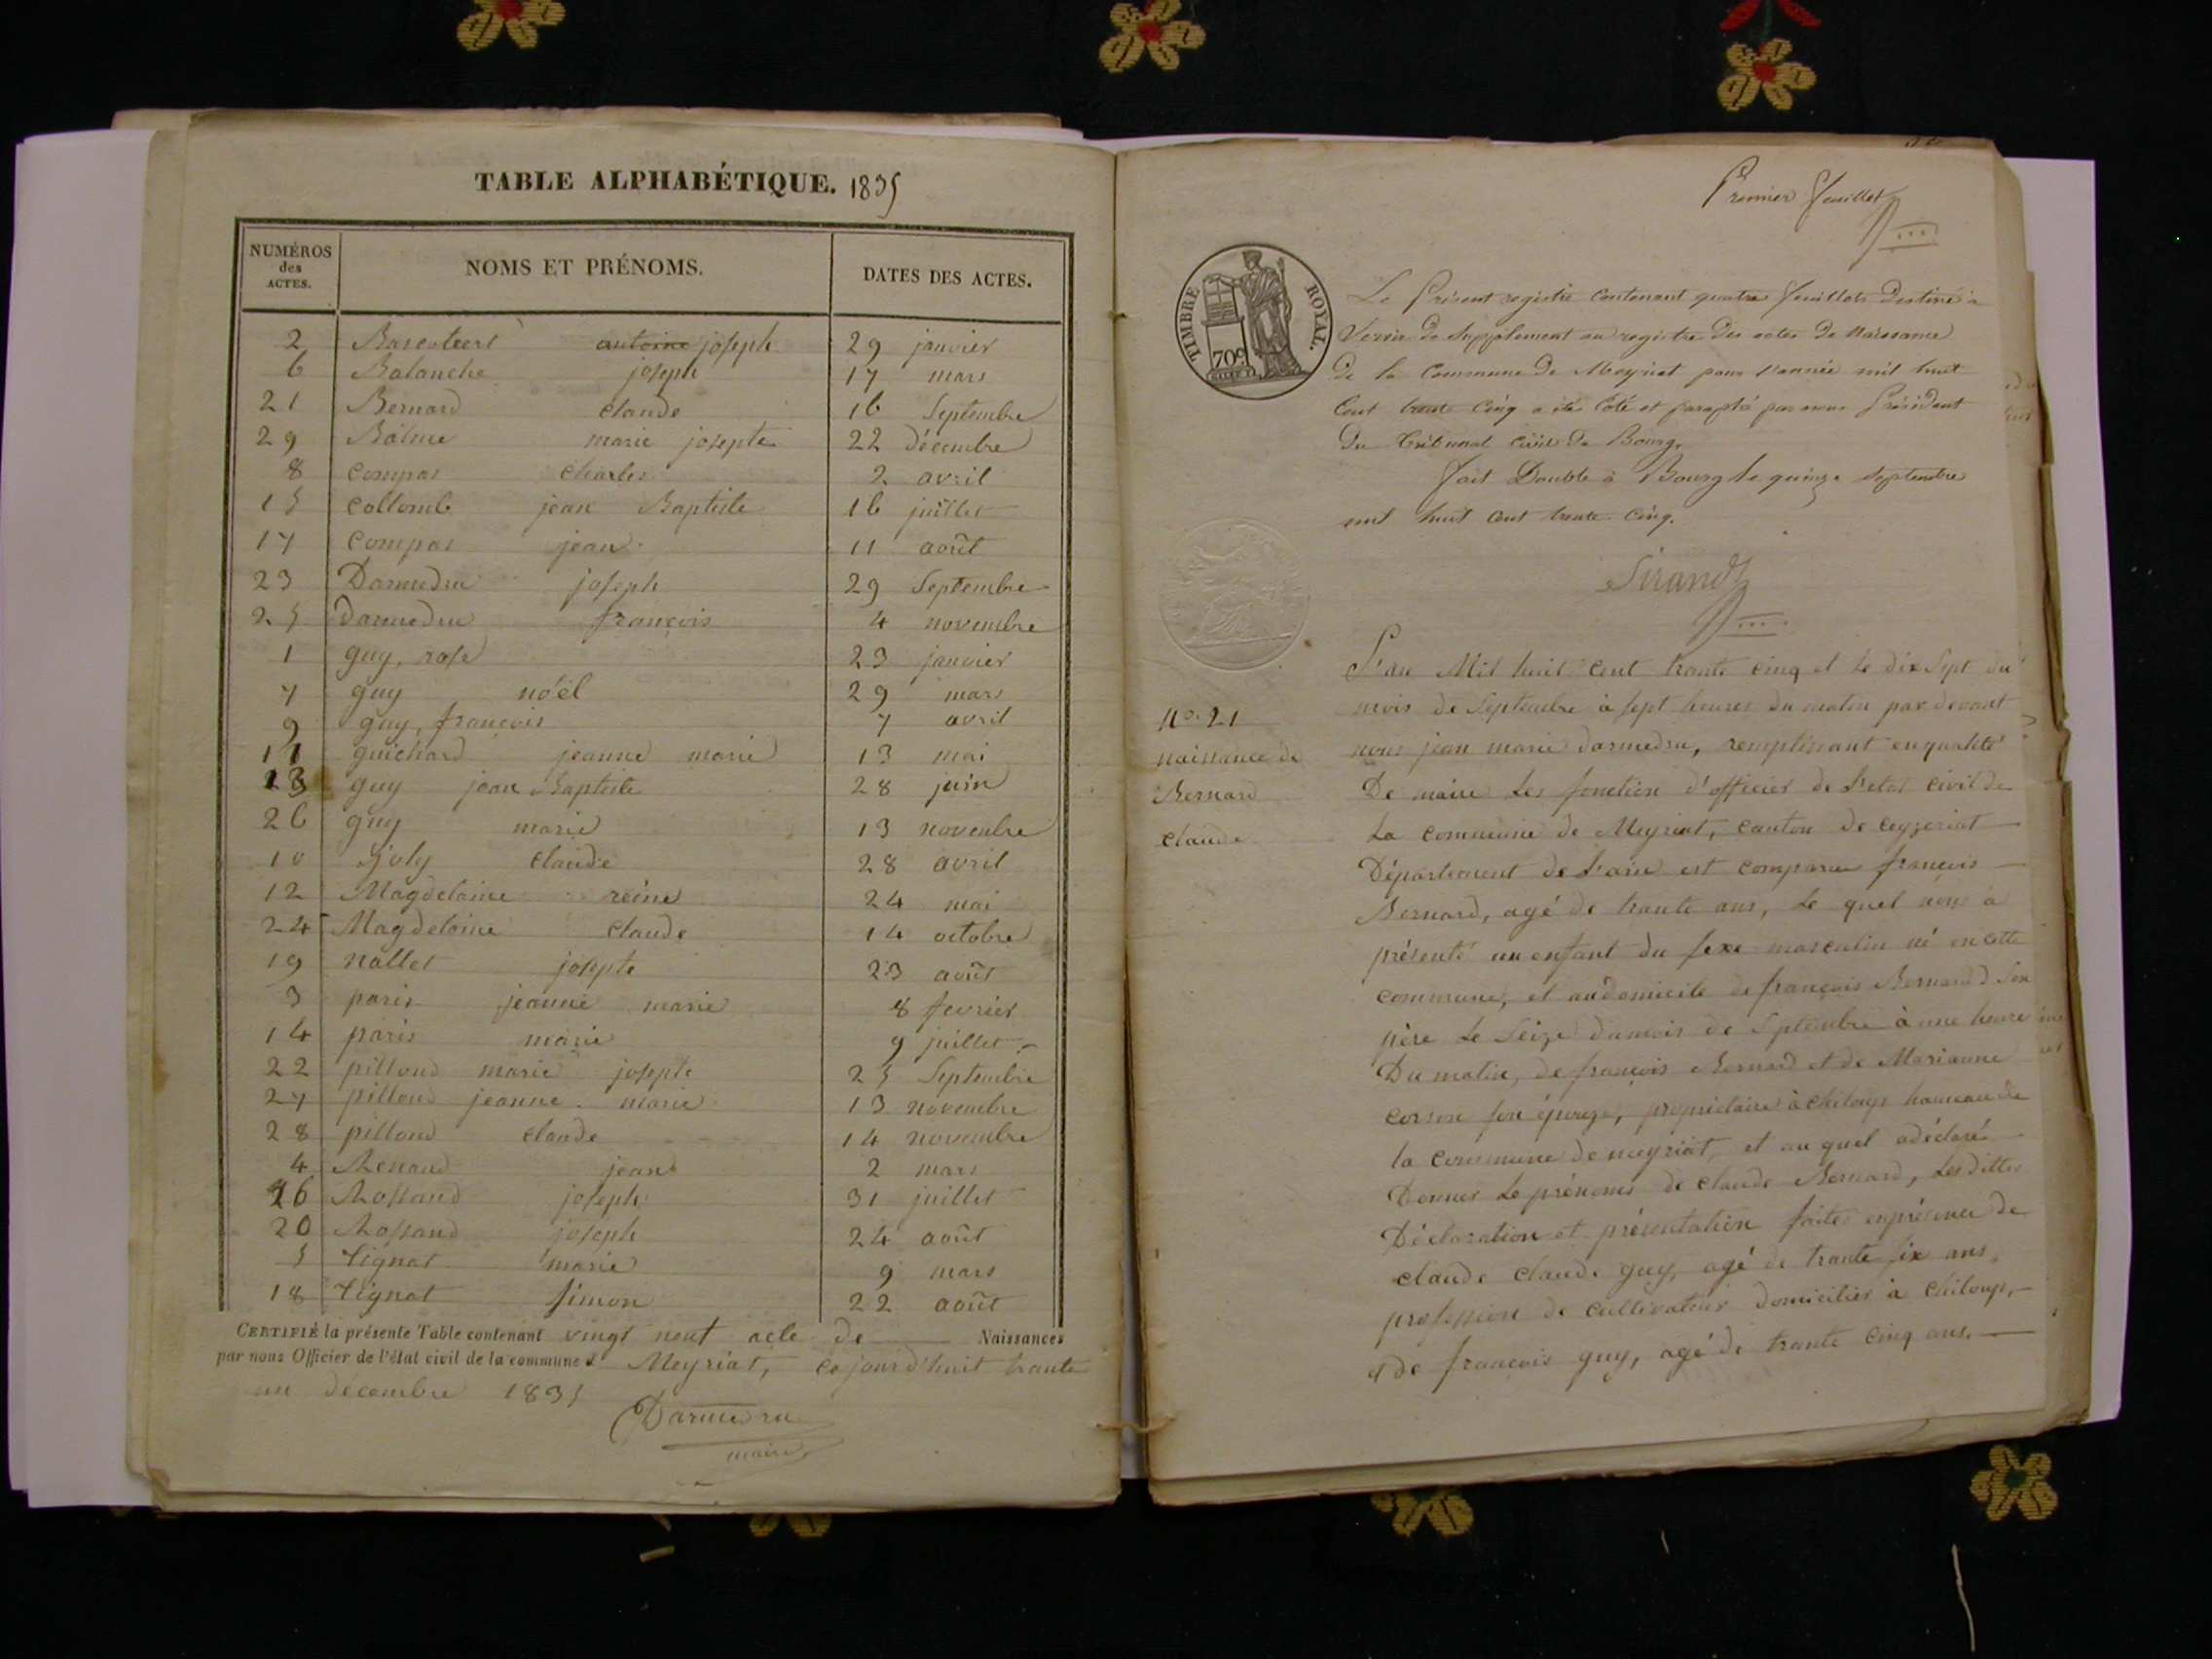 TABLE ALPHABÉTIQUE. 1835
NUMÉROS des ACTES. NOMS ET PRÉNOMS. DATES DES ACTES.
2 antoine joseph 29 janvier
6 Balanche joseph 17 mars
21 Bernard claude 16 Septembre
29 Balme marie josepte 22 décembre
8 compas charles 2 avril
15 collomb jean Baptiste 16 juillet
17 compas jean 11 août
23 Darmedru joseph 29 Septembre
25 Darmedru françois 4 novembre
1 guy, rose 23 janvier
7 guy noël 29 mars
9 guy, françois 7 avril
11 guichard jeanne marie 13 mai
13 guy jean Baptiste 28 juin
26 guy marie 13 novembre
10 joly claude 28 avril
12 Magdelaine reine 24 mai
24 Magdelaine claude 14 octobre
19 nallet josepte 23 août
3 paris jeanne marie 8 fevrier
14 paris marie 9 juillet
22 pilloud marie josepte 25 Septembre
27 pilloud jeanne marie 13 novembre
28 pilloud claude 14 novembre
4 Renaud jean 2 mars
16 Rossand joseph 31 juillet
20 Rossand joseph 24 août
5 tignat marie 9 mars
18 tignat simon 22 août
CERTIFIÉ la présente Table contenant vingt neuf acte de Naissances
par nous Officier de l'état civil de la commune de Meyriat, cejourd'huit trante
un décembre 1835
Darmedru
maire
Premier feuillet
TIMBRE ROYAL.
709
Le Présent registre contenant quatre feuillets destiné à
Servir de Supplément au registre des actes de Naissance
de la Commune de Meyriat pour l'année mil huit
Cent trente Cinq a été Coté et paraphé par nous Président
du tribunal civil de Bourg.
fait Double à Bourg le quinze Septembre
mil huit cent trente Cinq.
Sirand
No. 21
naissance de
Bernard
claude
L'an Mil huit cent trante cinq et le dix Sept du
mois de Septembre à sept heures du matin par devant
nous jean marie darmedru, remplissant en qualité
De maire Les fonction d'officier de L'etat civil de
La commune de Meyriat, canton de ceyzeriat
Département de L'ain est comparu françois
Bernard, agé de trante ans, Le quel nous a
présenté un enfant du sexe masculin né en cette
commune, et au domicile de françois Bernard son
père Le Seize du mois de Septembre à une heure
Du matin, de françois Bernard et de Marianne
corson son épouse, propriétaire à chiloup hameau de
la commune de meyriat, et au quel a déclaré
Donner Le prénoms de claude Bernard, Les dittes
Déclaration et présentation faites en présence de
claude claude guy, agé de trante six ans,
profession de cultivateur domicilier à chiloup,
et de françois guy, agé de trante cinq ans.